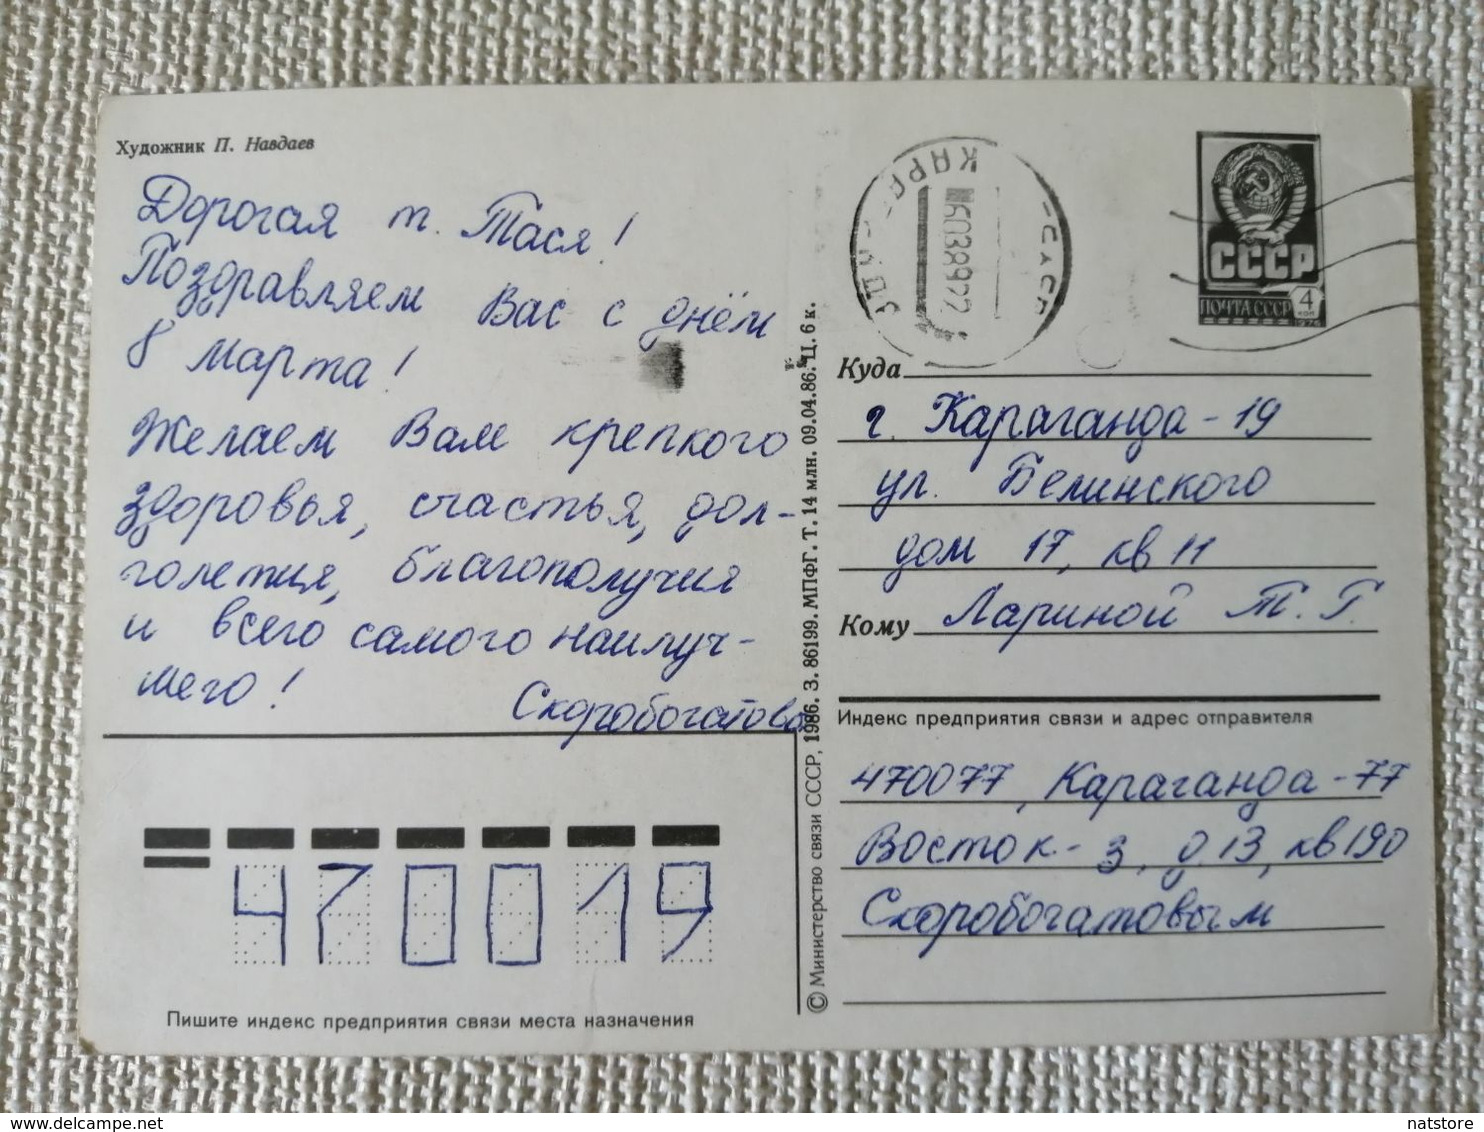 Художник П. Навдаев
Дорогая т. Тася!
Поздравляем Вас с днём
8 марта!
Желаем Вам крепкого
здоровья, счастья, дол-
голетия, благополучия
и всего самого наилуч-
шего!
Скоробогатовы
470019
Пишите индекс предприятия связи места назначения
© Министерство связи СССР, 1986. З. 86199. МПФГ. Т. 14 млн. 09.04.86. Ц. 6 к.
СССР
ПОЧТА СССР
4
коп
1976
Куда
г. Караганда-19
ул. Белинского
дом 17, кв 11
Кому Лариной Т. Г.
Индекс предприятия связи и адрес отправителя
470077, Караганда-77
Восток-3, д 13, кв 190
Скоробогатовым
natstore
delcampe.net